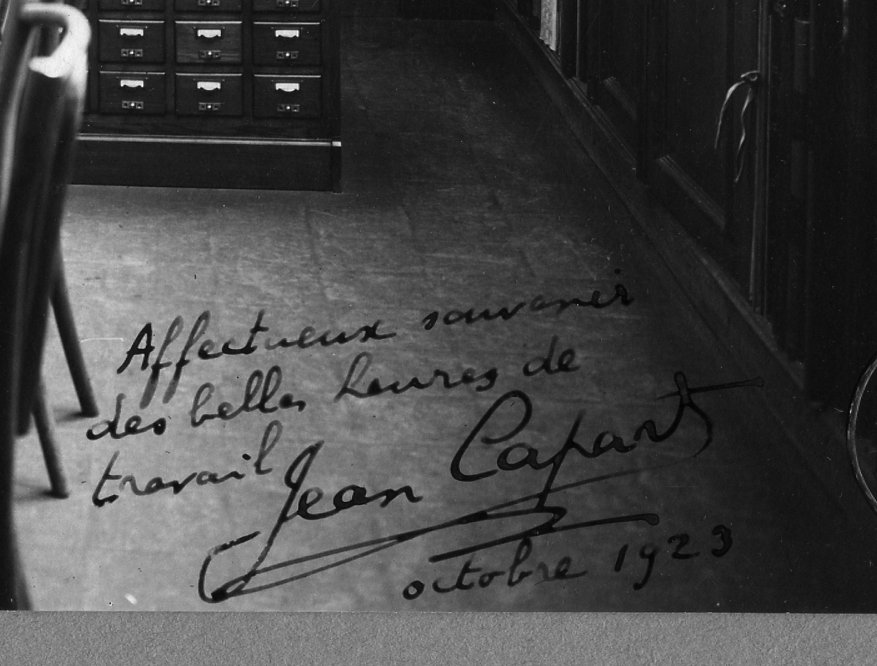 Affectueux souvenir
des belles heures de
travail
Jean Capart
octobre 1923